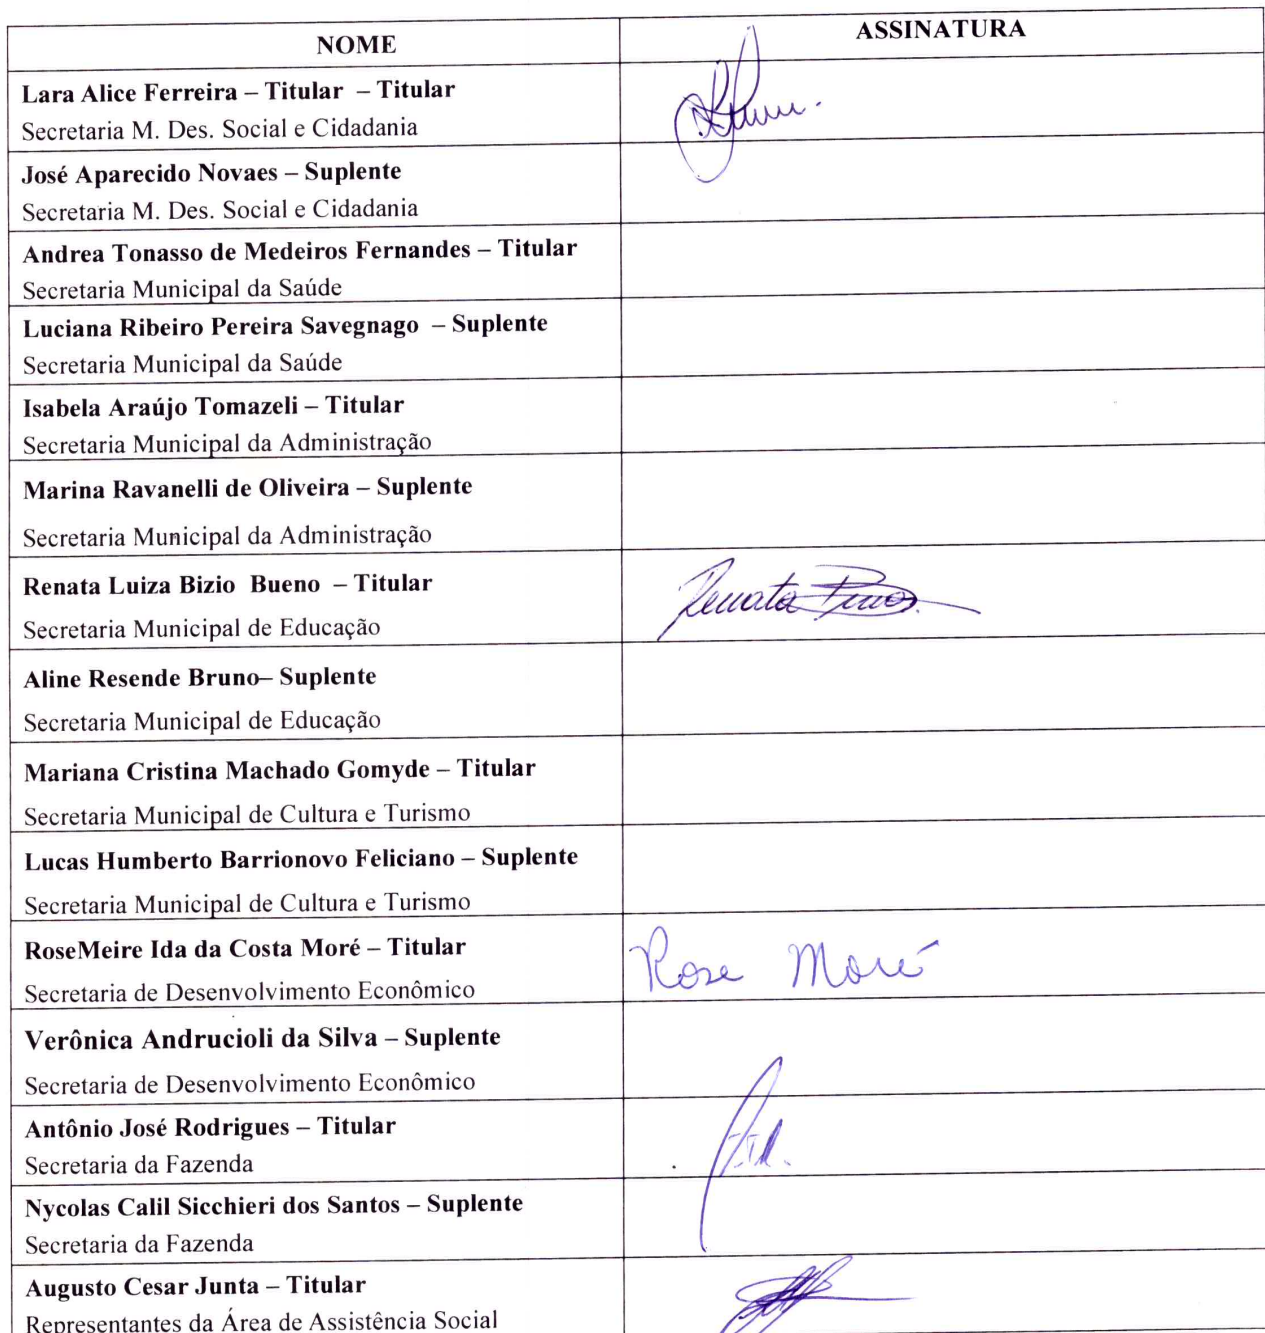 NOME
ASSINATURA
Lara Alice Ferreira – Titular – Titular
Secretaria M. Des. Social e Cidadania
José Aparecido Novaes – Suplente
Secretaria M. Des. Social e Cidadania
Andrea Tonasso de Medeiros Fernandes – Titular
Secretaria Municipal da Saúde
Luciana Ribeiro Pereira Savegnago – Suplente
Secretaria Municipal da Saúde
Isabela Araújo Tomazeli – Titular
Secretaria Municipal da Administração
Marina Ravanelli de Oliveira – Suplente
Secretaria Municipal da Administração
Renata Luiza Bizio Bueno – Titular
Secretaria Municipal de Educação
Renata
Aline Resende Bruno– Suplente
Secretaria Municipal de Educação
Mariana Cristina Machado Gomyde – Titular
Secretaria Municipal de Cultura e Turismo
Lucas Humberto Barrionovo Feliciano – Suplente
Secretaria Municipal de Cultura e Turismo
RoseMeire Ida da Costa Moré – Titular
Secretaria de Desenvolvimento Econômico
Rose Moré
Verônica Andrucioli da Silva – Suplente
Secretaria de Desenvolvimento Econômico
Antônio José Rodrigues – Titular
Secretaria da Fazenda
Nycolas Calil Sicchieri dos Santos – Suplente
Secretaria da Fazenda
Augusto Cesar Junta – Titular
Representantes da Área de Assistência Social